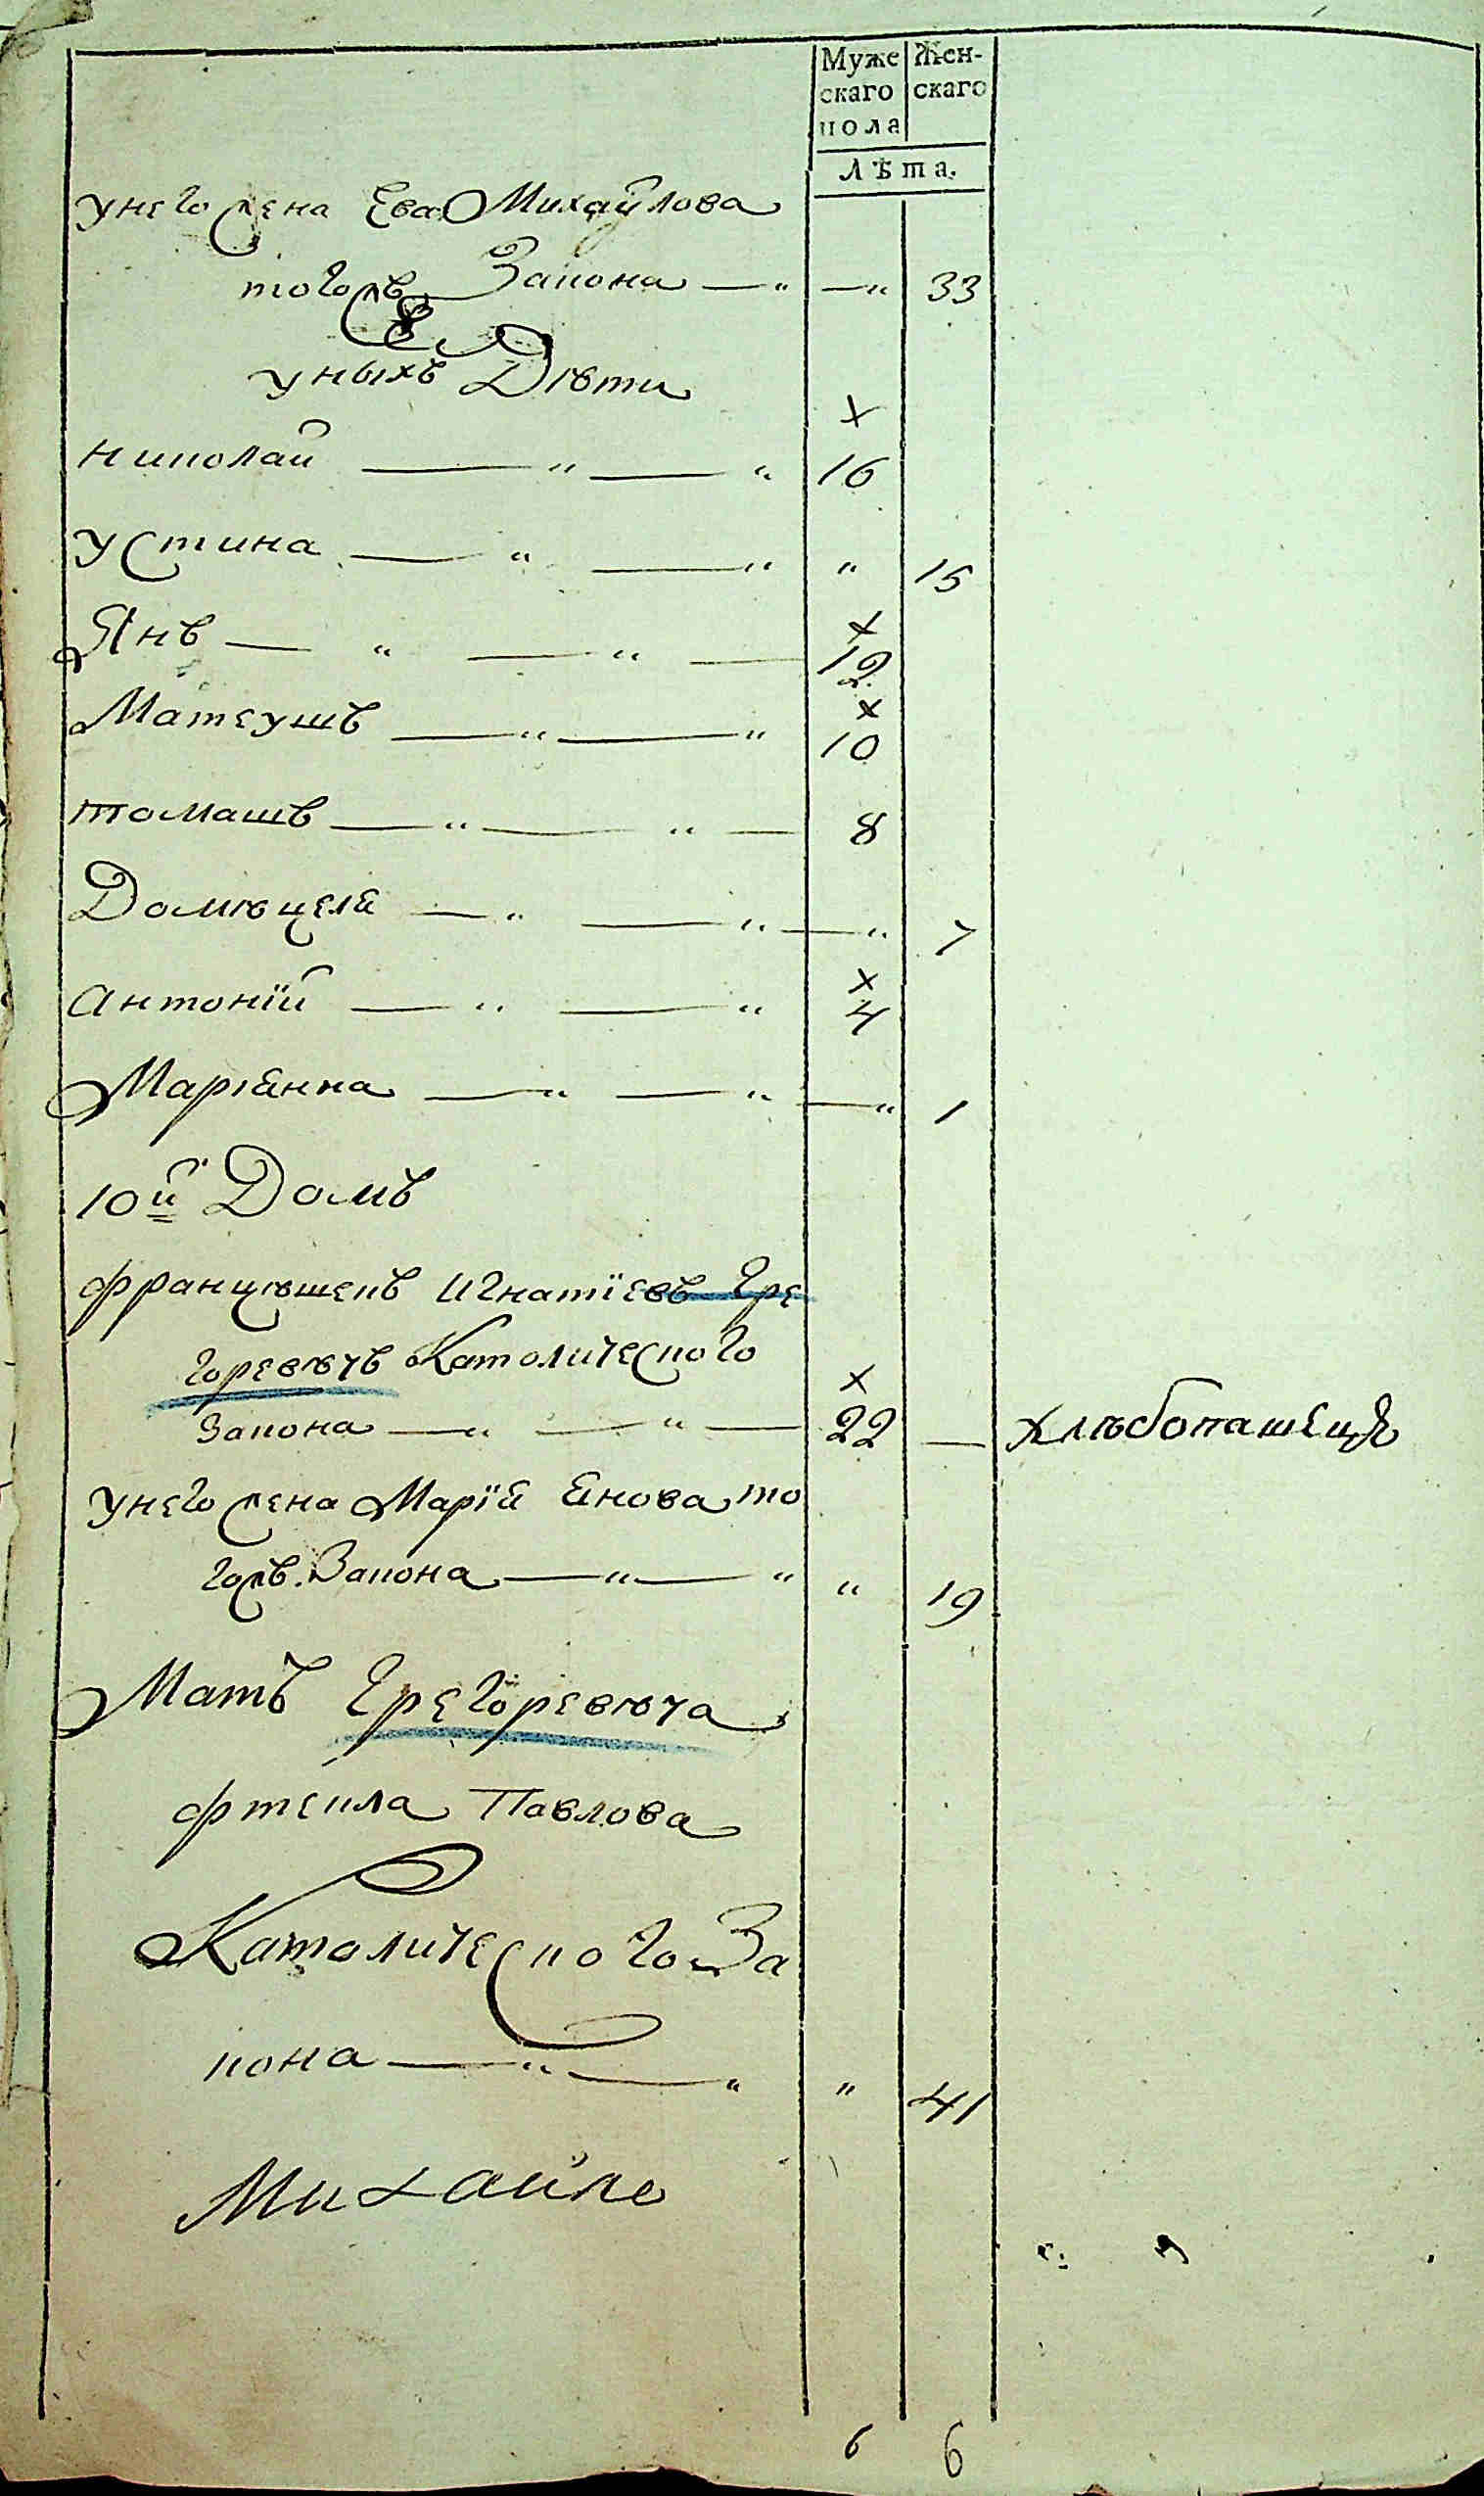 Муже Жен-
скаго скаго
пола
Лѣта.
унего жена Ева Михайлова
тогожъ Закона — „ — „ 33
уныхъ Дѣти
х
николай — „ — „ 16
устина — „ — „ „ 15
х
Янъ — „ — „ — 12
х
Матеушъ — „ — „ 10
томашъ — „ — „ — 8
Домѣцеля — „ — „ — „ 7
х
антонїй — „ — „ 4
Маріянна — „ — „ — „ 1
10й Домъ
францѣшекъ Игнатїевъ Гре
горевѣчъ Католического
х
Закона — „ — „ — 22 — хлѣбопашецъ
унего жена Марїя Янова то
гожъ Закона — „ — „ „ 19
Матъ Грегоревѣча
фтекла Павлова
Католического За
кона — „ — „ „ 41
Михайло
6 6